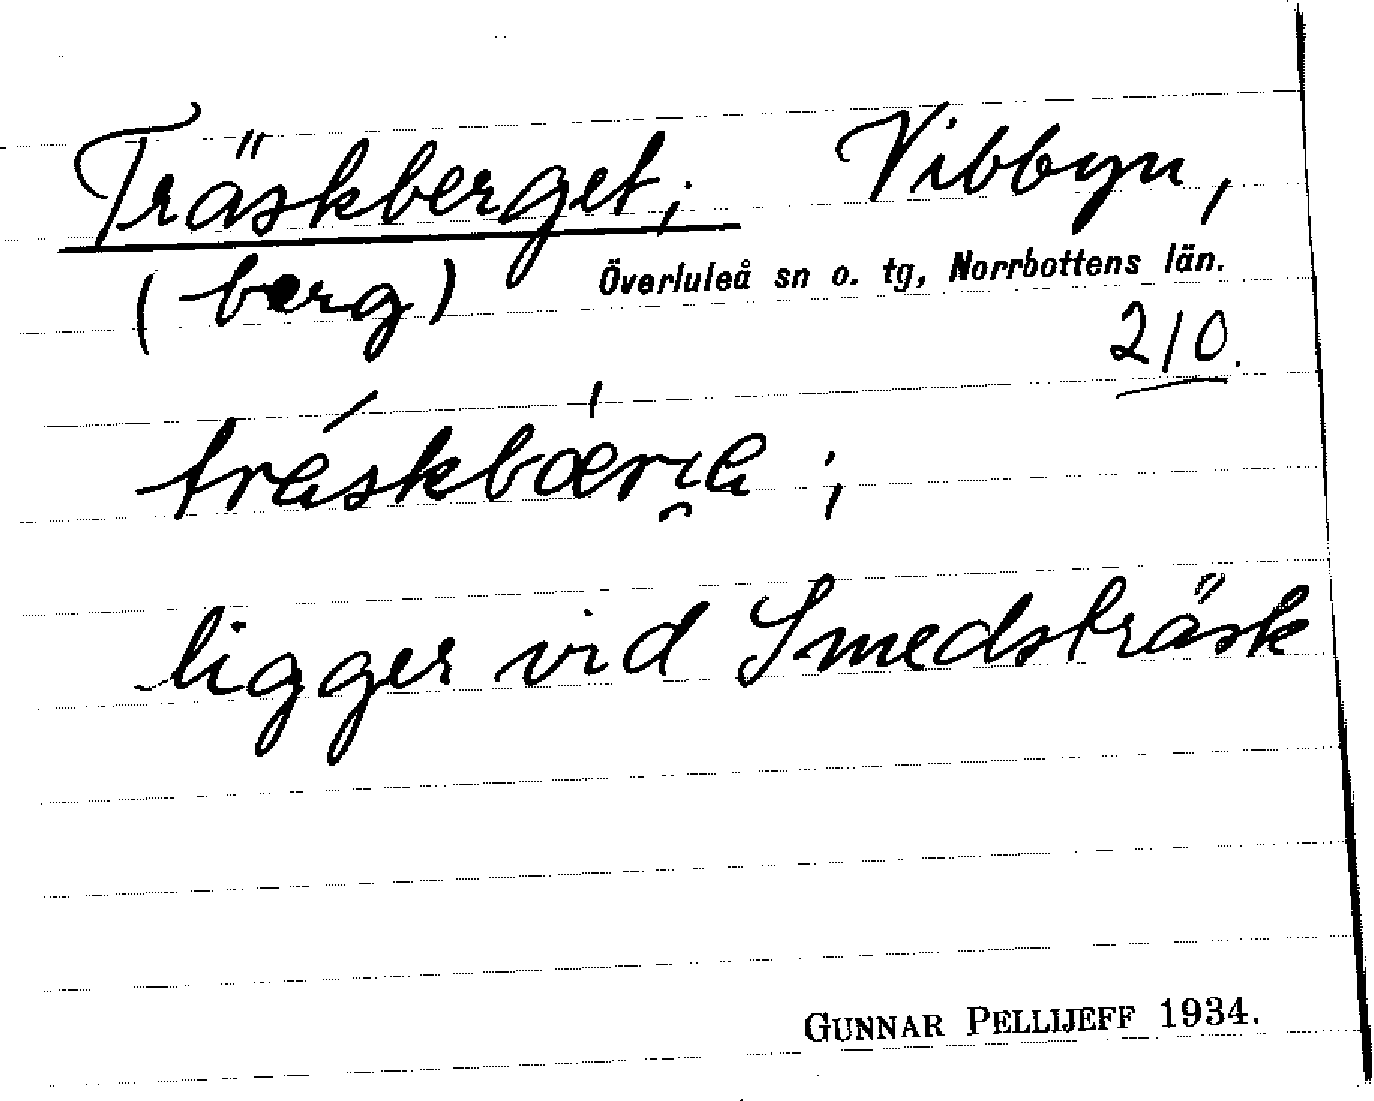 Träskberget; Vibbyn,
(berg) Överluleå sn o. tg, Norrbottens län.
210.
ligger vid Smedsträsk
GUNNAR PELLIJEFF 1934.